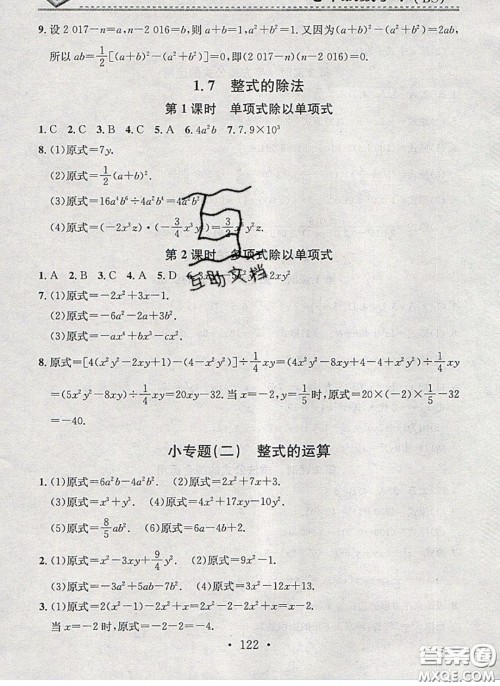 9. 设 2 017-n=a,n-2 016=b,则 a+b=1. 因为(a+b)²-(a²+b²)=2ab,
所以 ab=½[(a+b)²-(a²+b²)]=0. 即(2 017-n)(n-2 016)=0.
1.7 整式的除法
第 1 课时 单项式除以单项式
1. C 2. C 3. B 4. C 5. A 6. 4a²b 7. 7.9×10³
8. (1)原式=7y.
(2)原式=½(a+b)².
(3)原式=16a⁴b⁶÷4a²b⁴=4a²b²
(4)原式=(-2x³z)·(-¾x³y)=
第 2 课时 多项式除以单项式
1. A 2. B 3. C 4. A 5. D
7. (1)原式=-2x²+3x-1.
(2)原式=-6a²-2a+2b.
(3)原式=-ax⁴+bx³-cx².
8. 原式=[4(x²y²-2xy+1)-(4-x²y²)]÷¼xy=(4x²y²-8xy+4-4+x²y²)÷¼xy
=(5x²y²-8xy)÷¼xy=20xy-32. 当 x=-2,y=⅕时,原式=20×(-2)×⅕-32
=-40.
小专题(二) 整式的运算
1. (1)原式=6a²b-4a²b². (2)原式=2x²+7x+3.
(3)原式=x³+y³. (4)原式=4x²+17xy-10y².
(5)原式=8/5ab². (6)原式=-4b+6a.
2. (1)原式=x²-3xy+9/4y². (2)原式=9x²-4.
(3)原式=-3a²+5ab-7b². (4)原式=3x²-12x+13.
3. (1)原式=2(x²-1)-2x²+x=2x²-2-2x²+x=x-2.
当 x=-2 时,原式=-2-2=-4.
· 122 ·
互助文档
答案圈
MXQE.COM